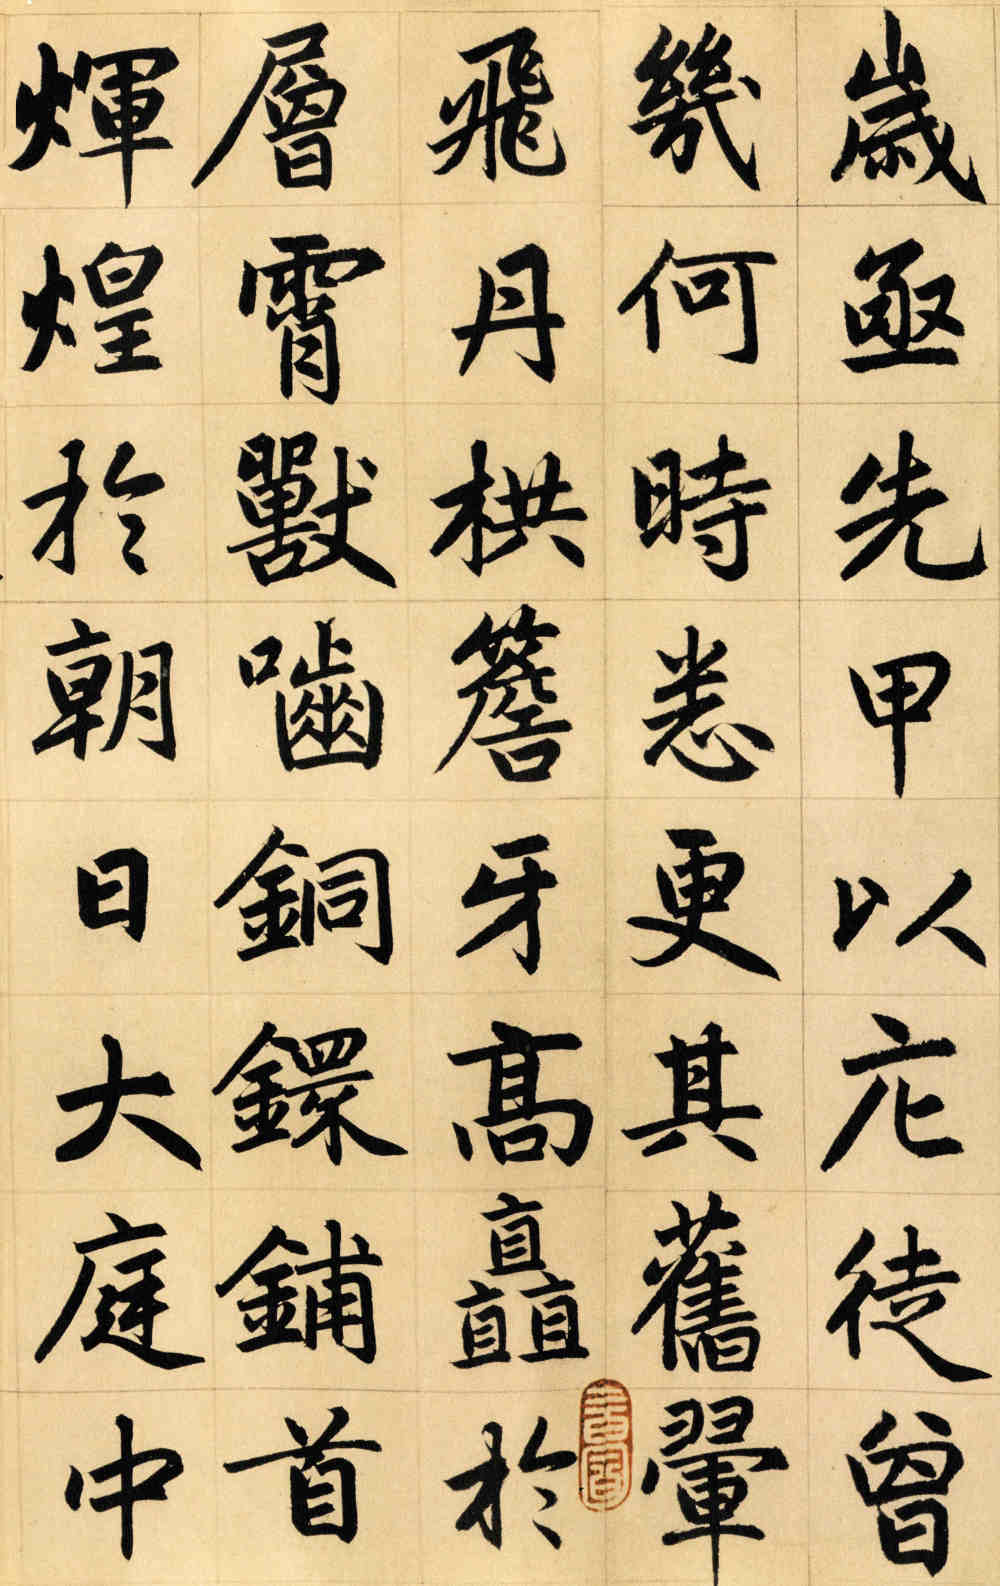 歲亟先甲以庀徒曾
幾何時悉更其舊翬
飛丹栱簷牙高矗於
層霄獸嚙銅鐶鋪首
輝煌於朝日大庭中